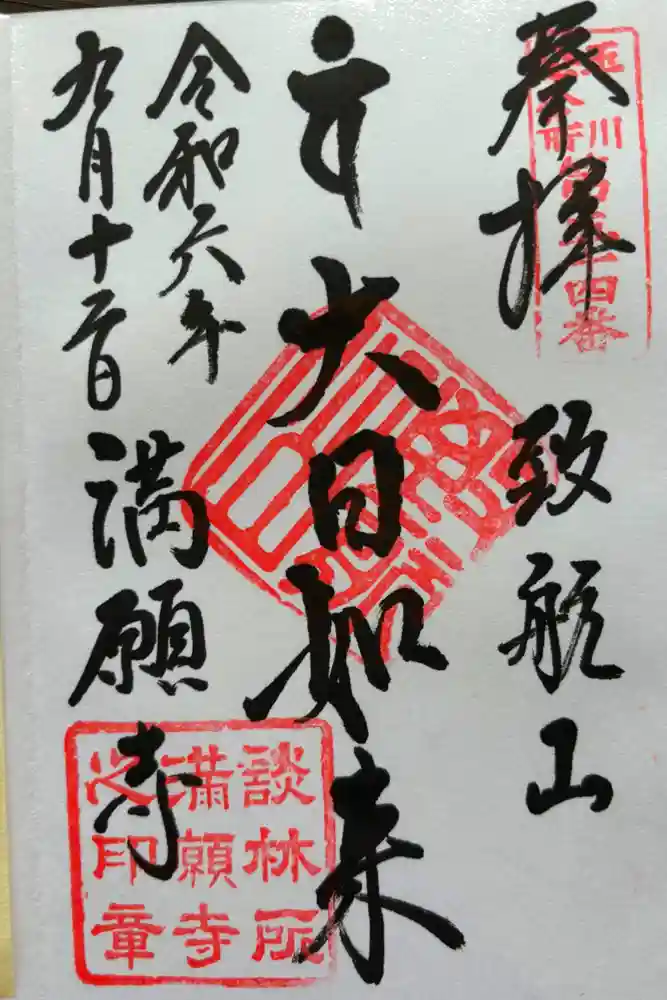 奉拝
致航山
大日如来
令和六年
九月十二日
満願寺
四番
談林所
満願寺
之印章